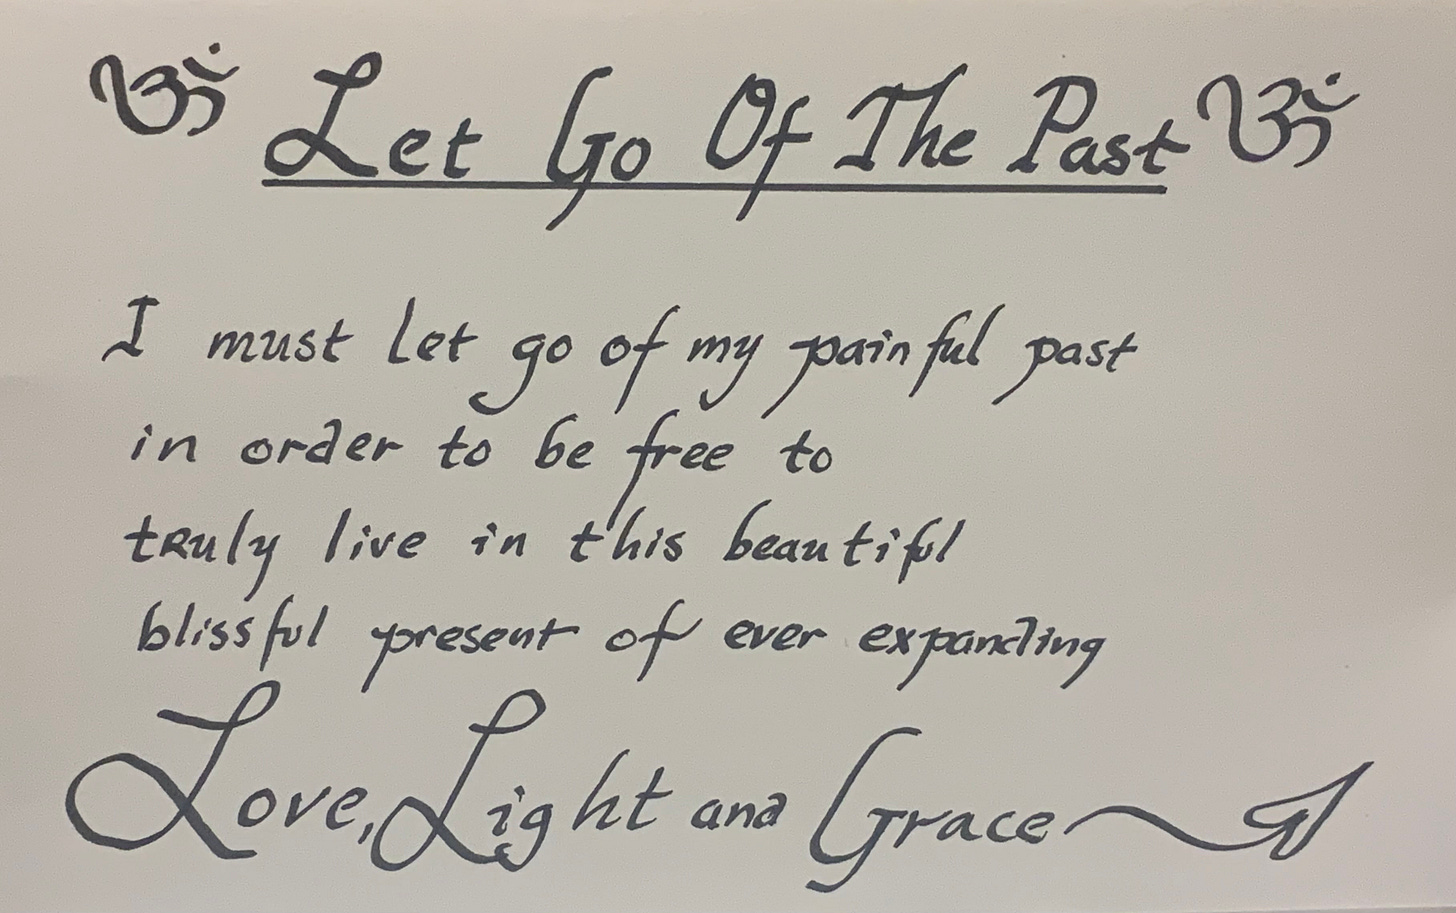 ॐ Let Go Of The Past ॐ
I must let go of my painful past
in order to be free to
truly live in this beautiful
blissful present of ever expanding
Love, Light and Grace